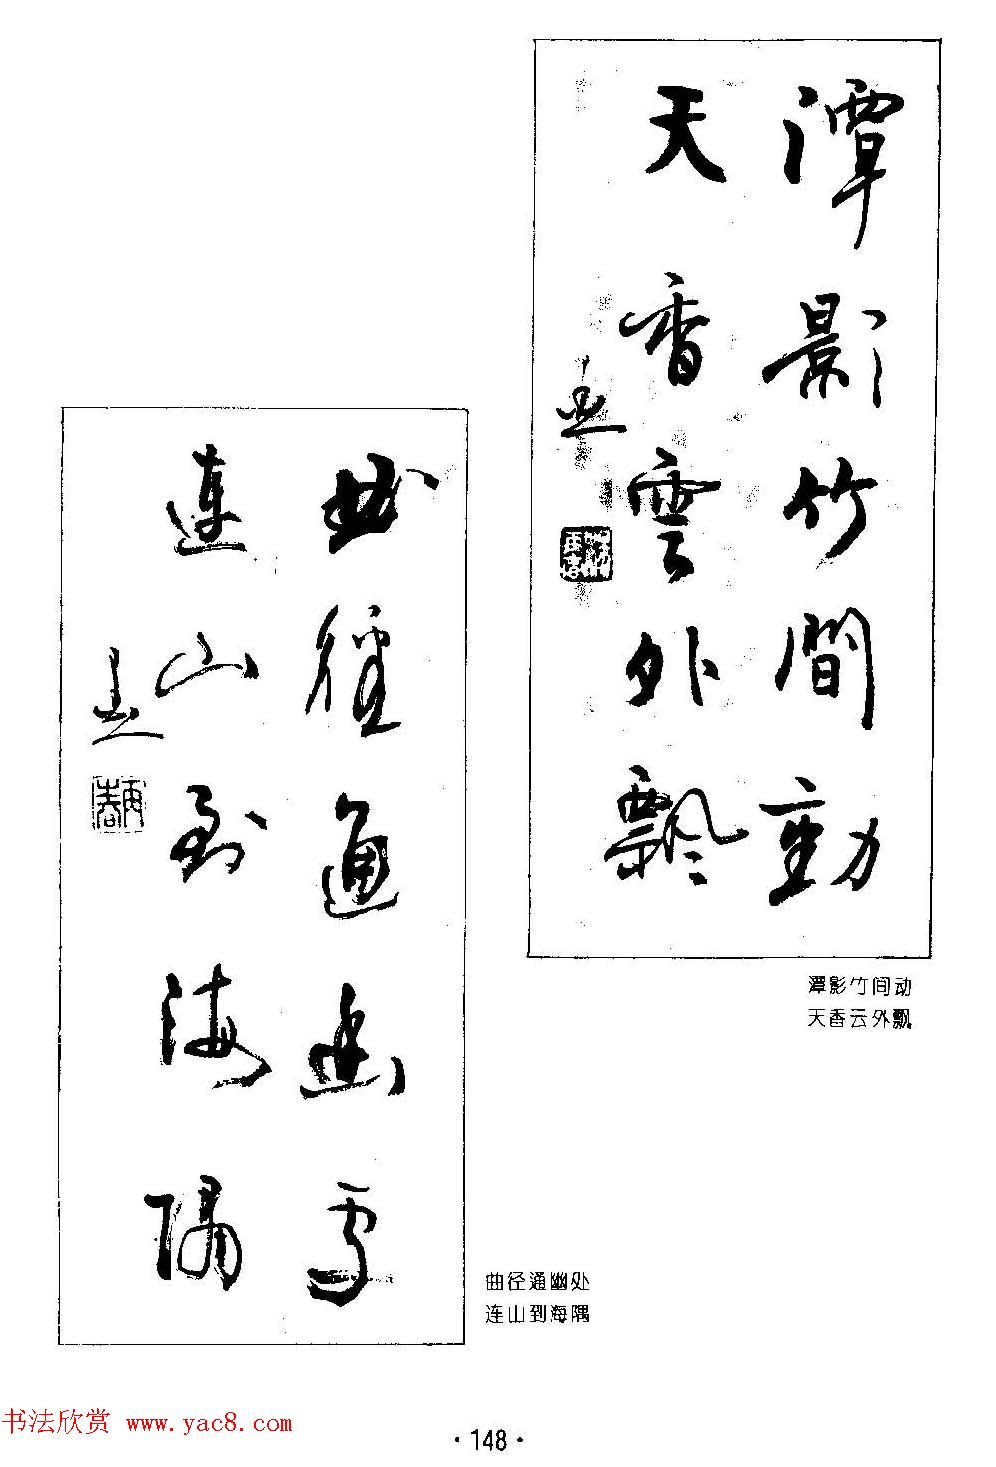 潭影竹間動
天香雲外飄
潭影竹间动
天香云外飘
曲徑通幽處
連山到海隅
曲径通幽处
连山到海隅
书法欣赏 www.yac8.com
·148·